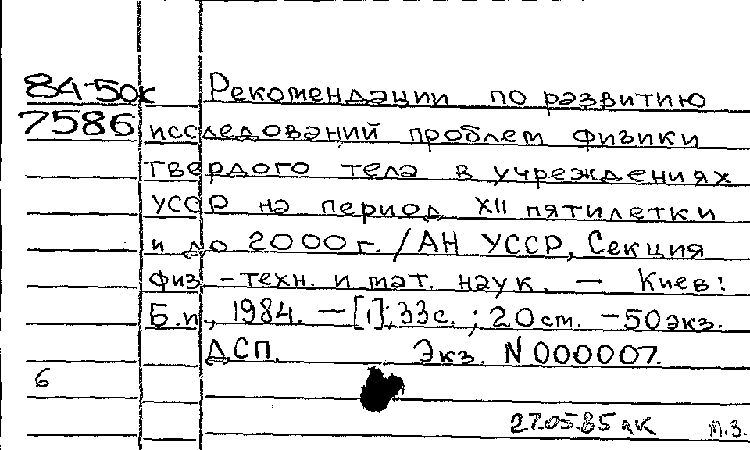 84-50к Рекомендации по развитию
7586 исследований проблем физики
твердого тела в учреждениях
УССР на период XII пятилетки
и до 2000 г. / АН УССР, Секция
физ.-техн. и мат. наук. — Киев:
Б.и., 1984. — [1], 33с. ; 20 см. — 50 экз.
ДСП. Экз. N 000007.
6
270585 т.з.